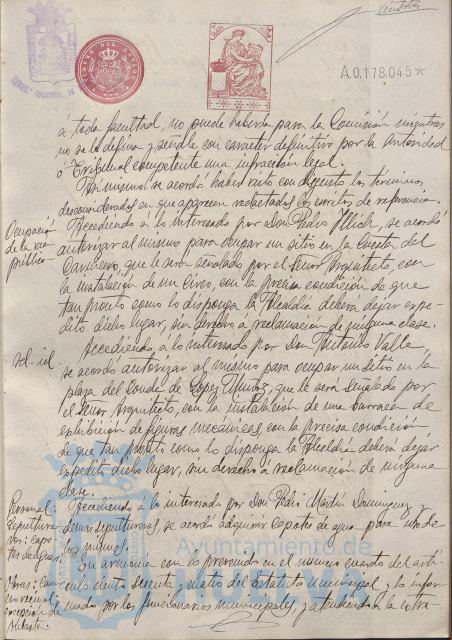 A.0.178.045*
á toda facultad, no puede haberla para la Comisión mientras
no se la defina y señale con caracter definitivo por la autoridad
ó Tribunal competente una infracción legal.
Así mismo se acordó haber visto con disgusto los términos
desconsiderados en que aparecen redactados los escritos de referencia.
Ocupación de la vía pública
Accediendo á lo interesado por Don Pedro Illich, se acordó
autorizar al mismo para ocupar un sitio en la Cuesta del
Carnicero, que le será señalado por el Señor Arquitecto, con
la instalación de un Circo, con la precisa condición de que
tan pronto como lo disponga la Alcaldía deberá dejar expe-
dito dicho lugar, sin derecho á reclamación de ninguna clase.
id. id.
Accediendo á lo interesado por Don Antonio Valle
se acordó autorizar al mismo para ocupar un sitio en la
plaza del Conde de López Muñoz, que le será señalado por
el Señor Arquitecto, con la instalación de una barraca de
exhibición de figuras mecánicas, con la precisa condición
de que tan pronto como lo disponga la Alcaldía deberá dejar
expedito dicho lugar, sin derecho á reclamación de ninguna
clase.
Personal: Sepultureros: capotes de agua
Accediendo á lo interesado por Don Pedro Martín Dominguez y
demas sepultureros, se acordó adquirir capotes de agua para uso de
los mismos.
En armonia con lo prevenido en el número cuarto del artí-
culo ciento sesenta y cuatro del Estatuto Municipal y lo infor-
mado por los funcionarios municipales, y atendiendo á la extra-
Obras:
Ayuntamiento de
HUELVA